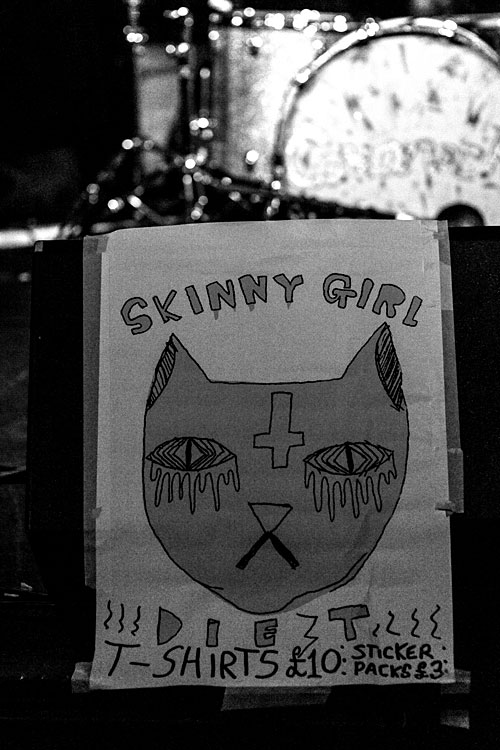 SKINNY GIRL
DIET
T-SHIRTS £10: STICKER
PACKS £3: